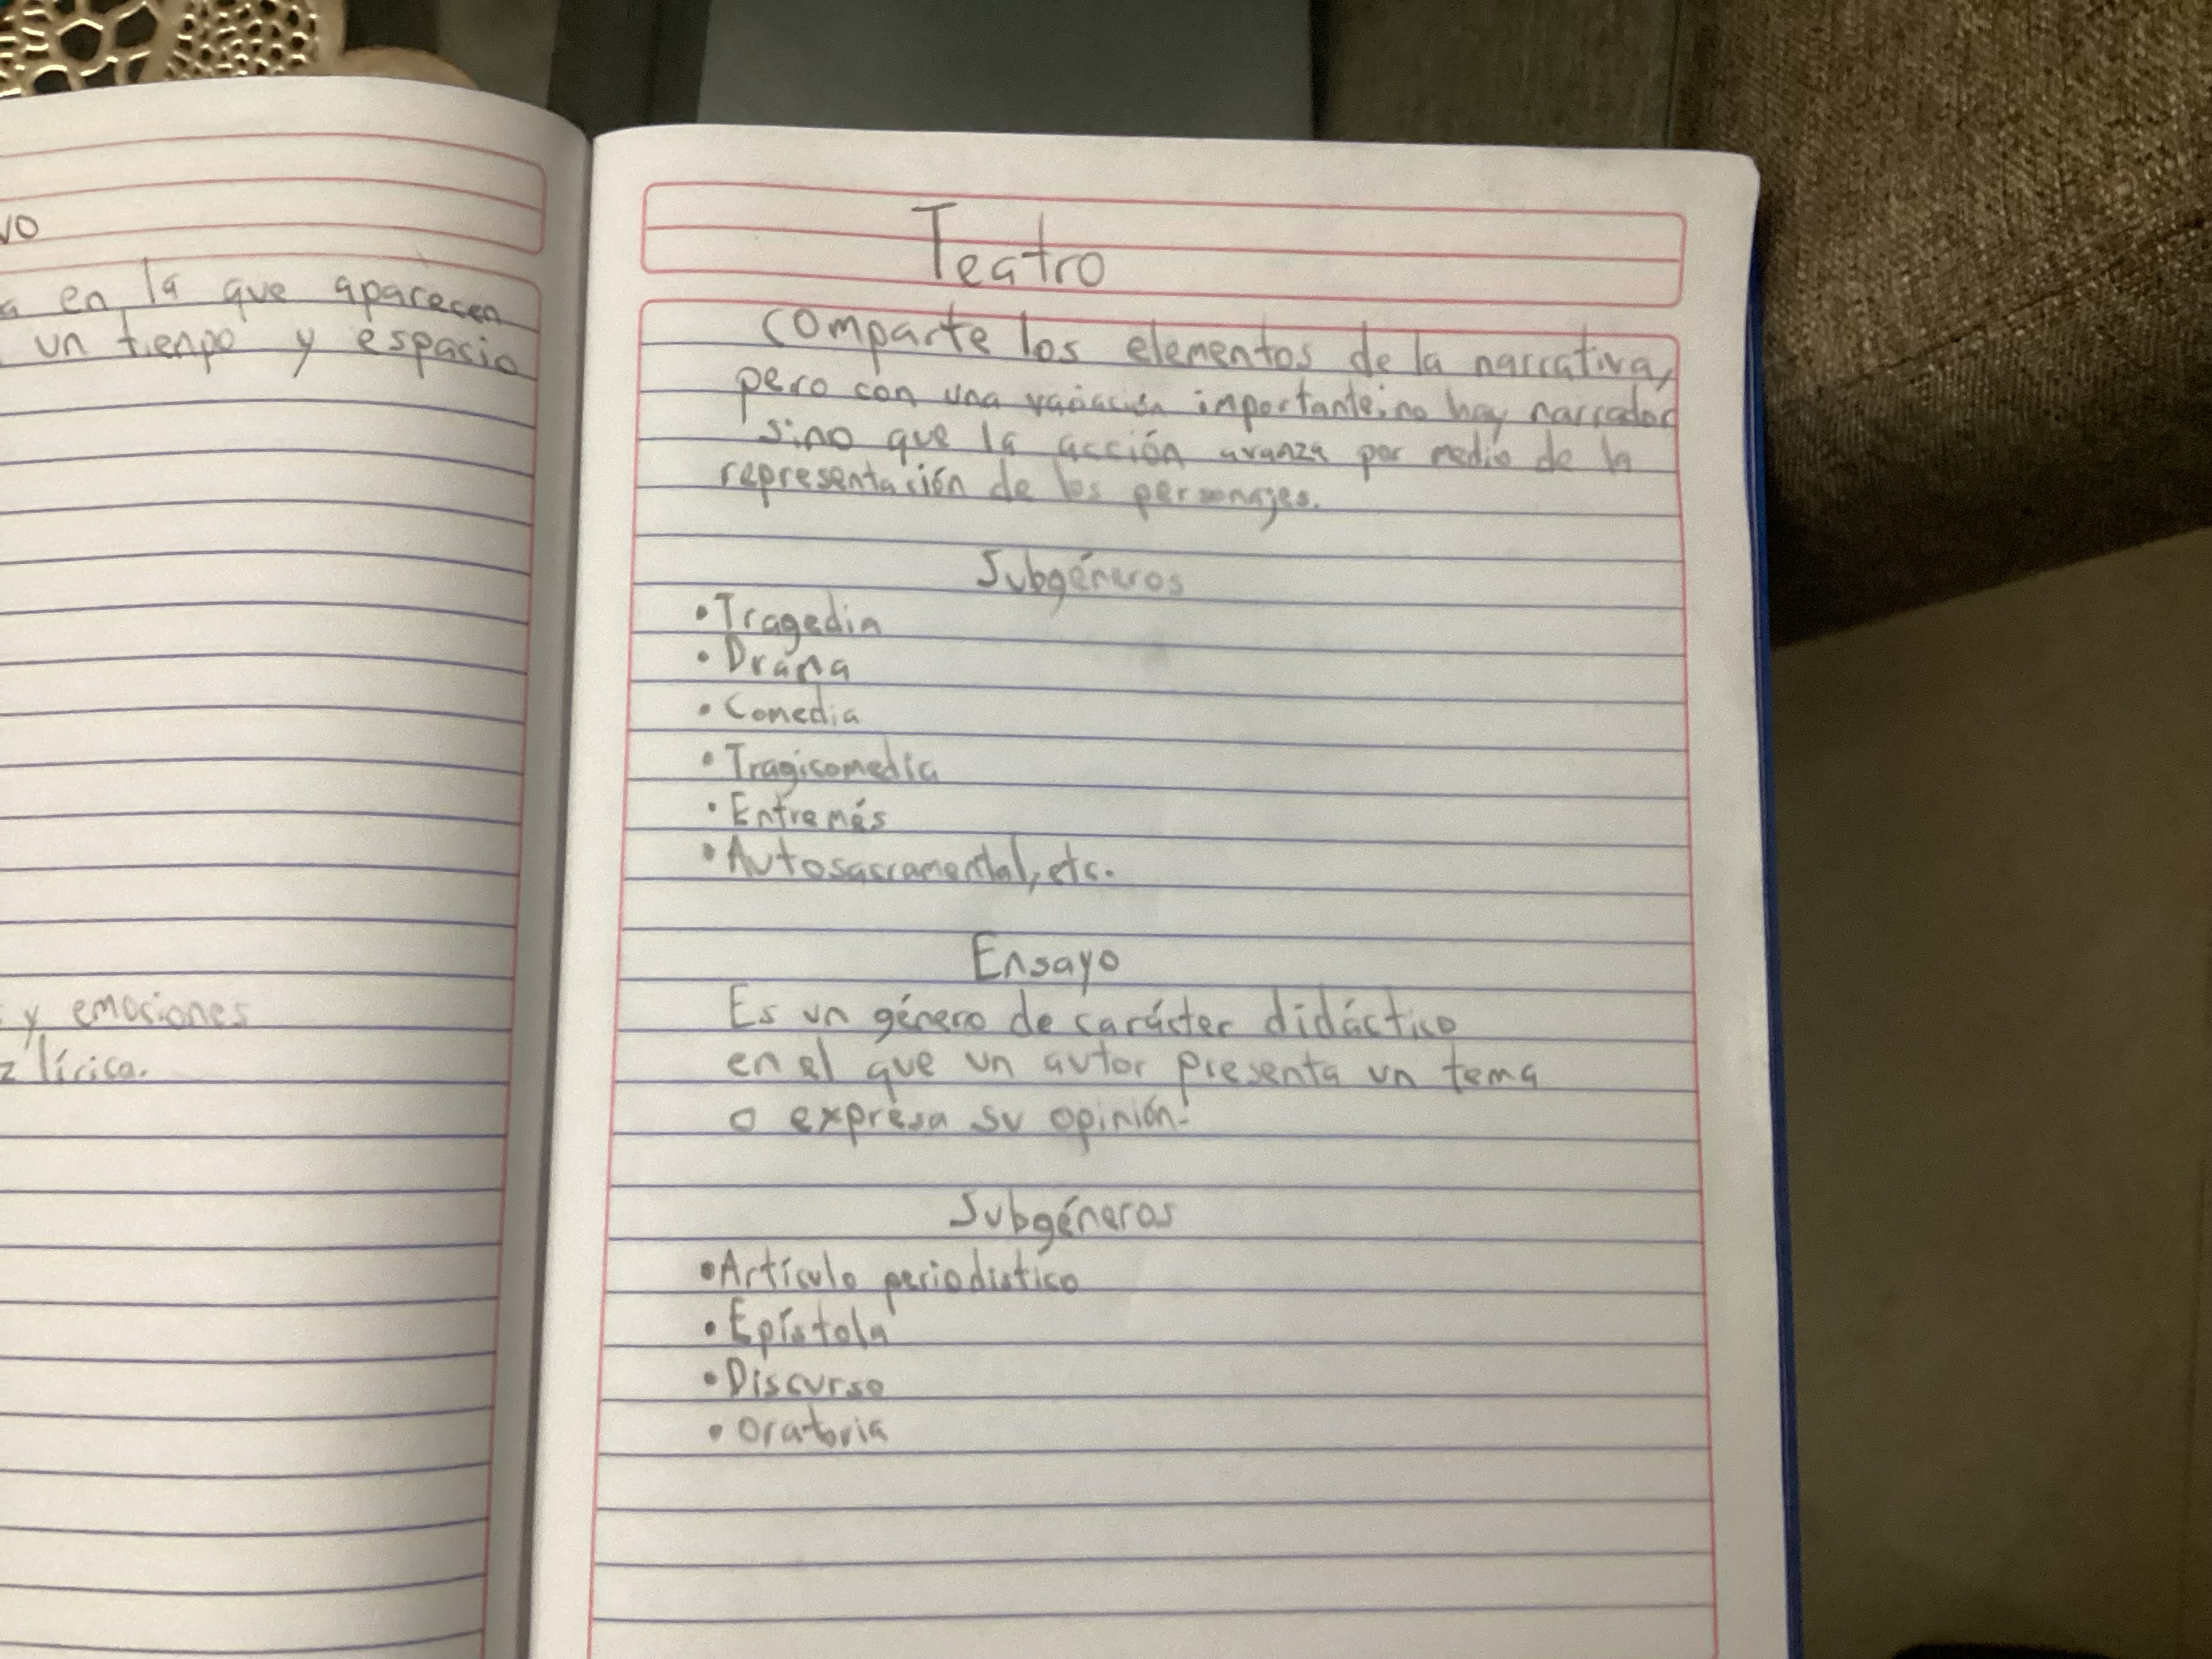 vo
a en la que aparecen
un tienpo y espacio
y emociones
z lírica.
Teatro
Comparte los elementos de la narrativa,
pero con una variación importante: no hay narrador
sino que la acción avanza por medio de la
representación de los personajes.
Subgéneros
• Tragedia
• Drama
• Comedia
• Tragicomedia
• Entremés
• Autosacramental, etc.
Ensayo
Es un género de carácter didáctico
en el que un autor presenta un tema
o expresa su opinión.
Subgéneros
• Artículo periodístico
• Epístola
• Discurso
• Oratoria